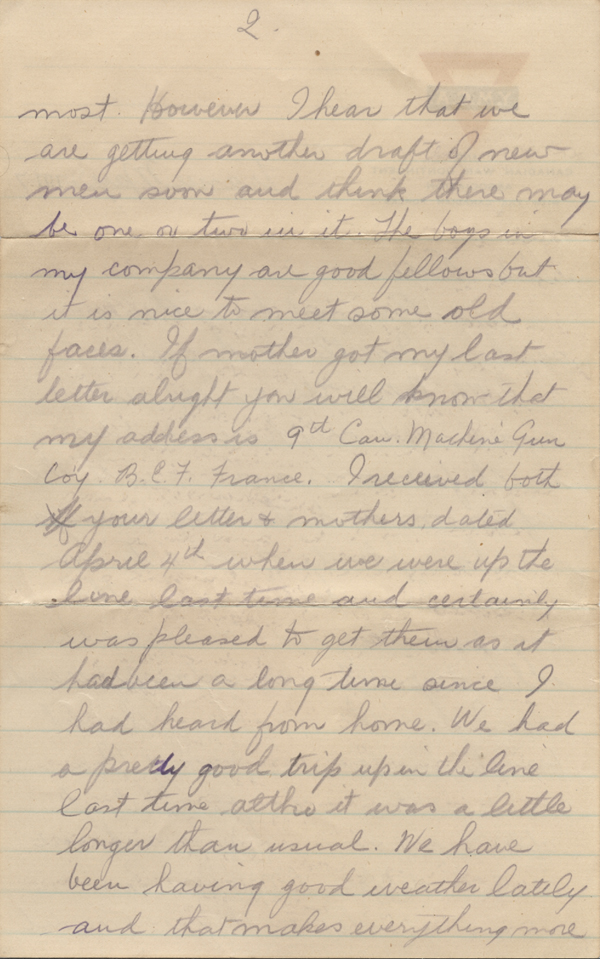 2.
most. However I hear that we
are getting another draft of new
men soon and think there may
be one or two in it. The boys in
my company are good fellows but
it is nice to meet some old
faces. If mother got my last
letter alright you will know that
my address is 9th Can. Machine Gun
Coy. B.E.F. France. I received both
your letter & mothers, dated
April 4th when we were up the
line last time and certainly
was pleased to get them as it
had been a long time since I
had heard from home. We had
a pretty good trip up in the line
last time altho it was a little
longer than usual. We have
been having good weather lately
and that makes everything more